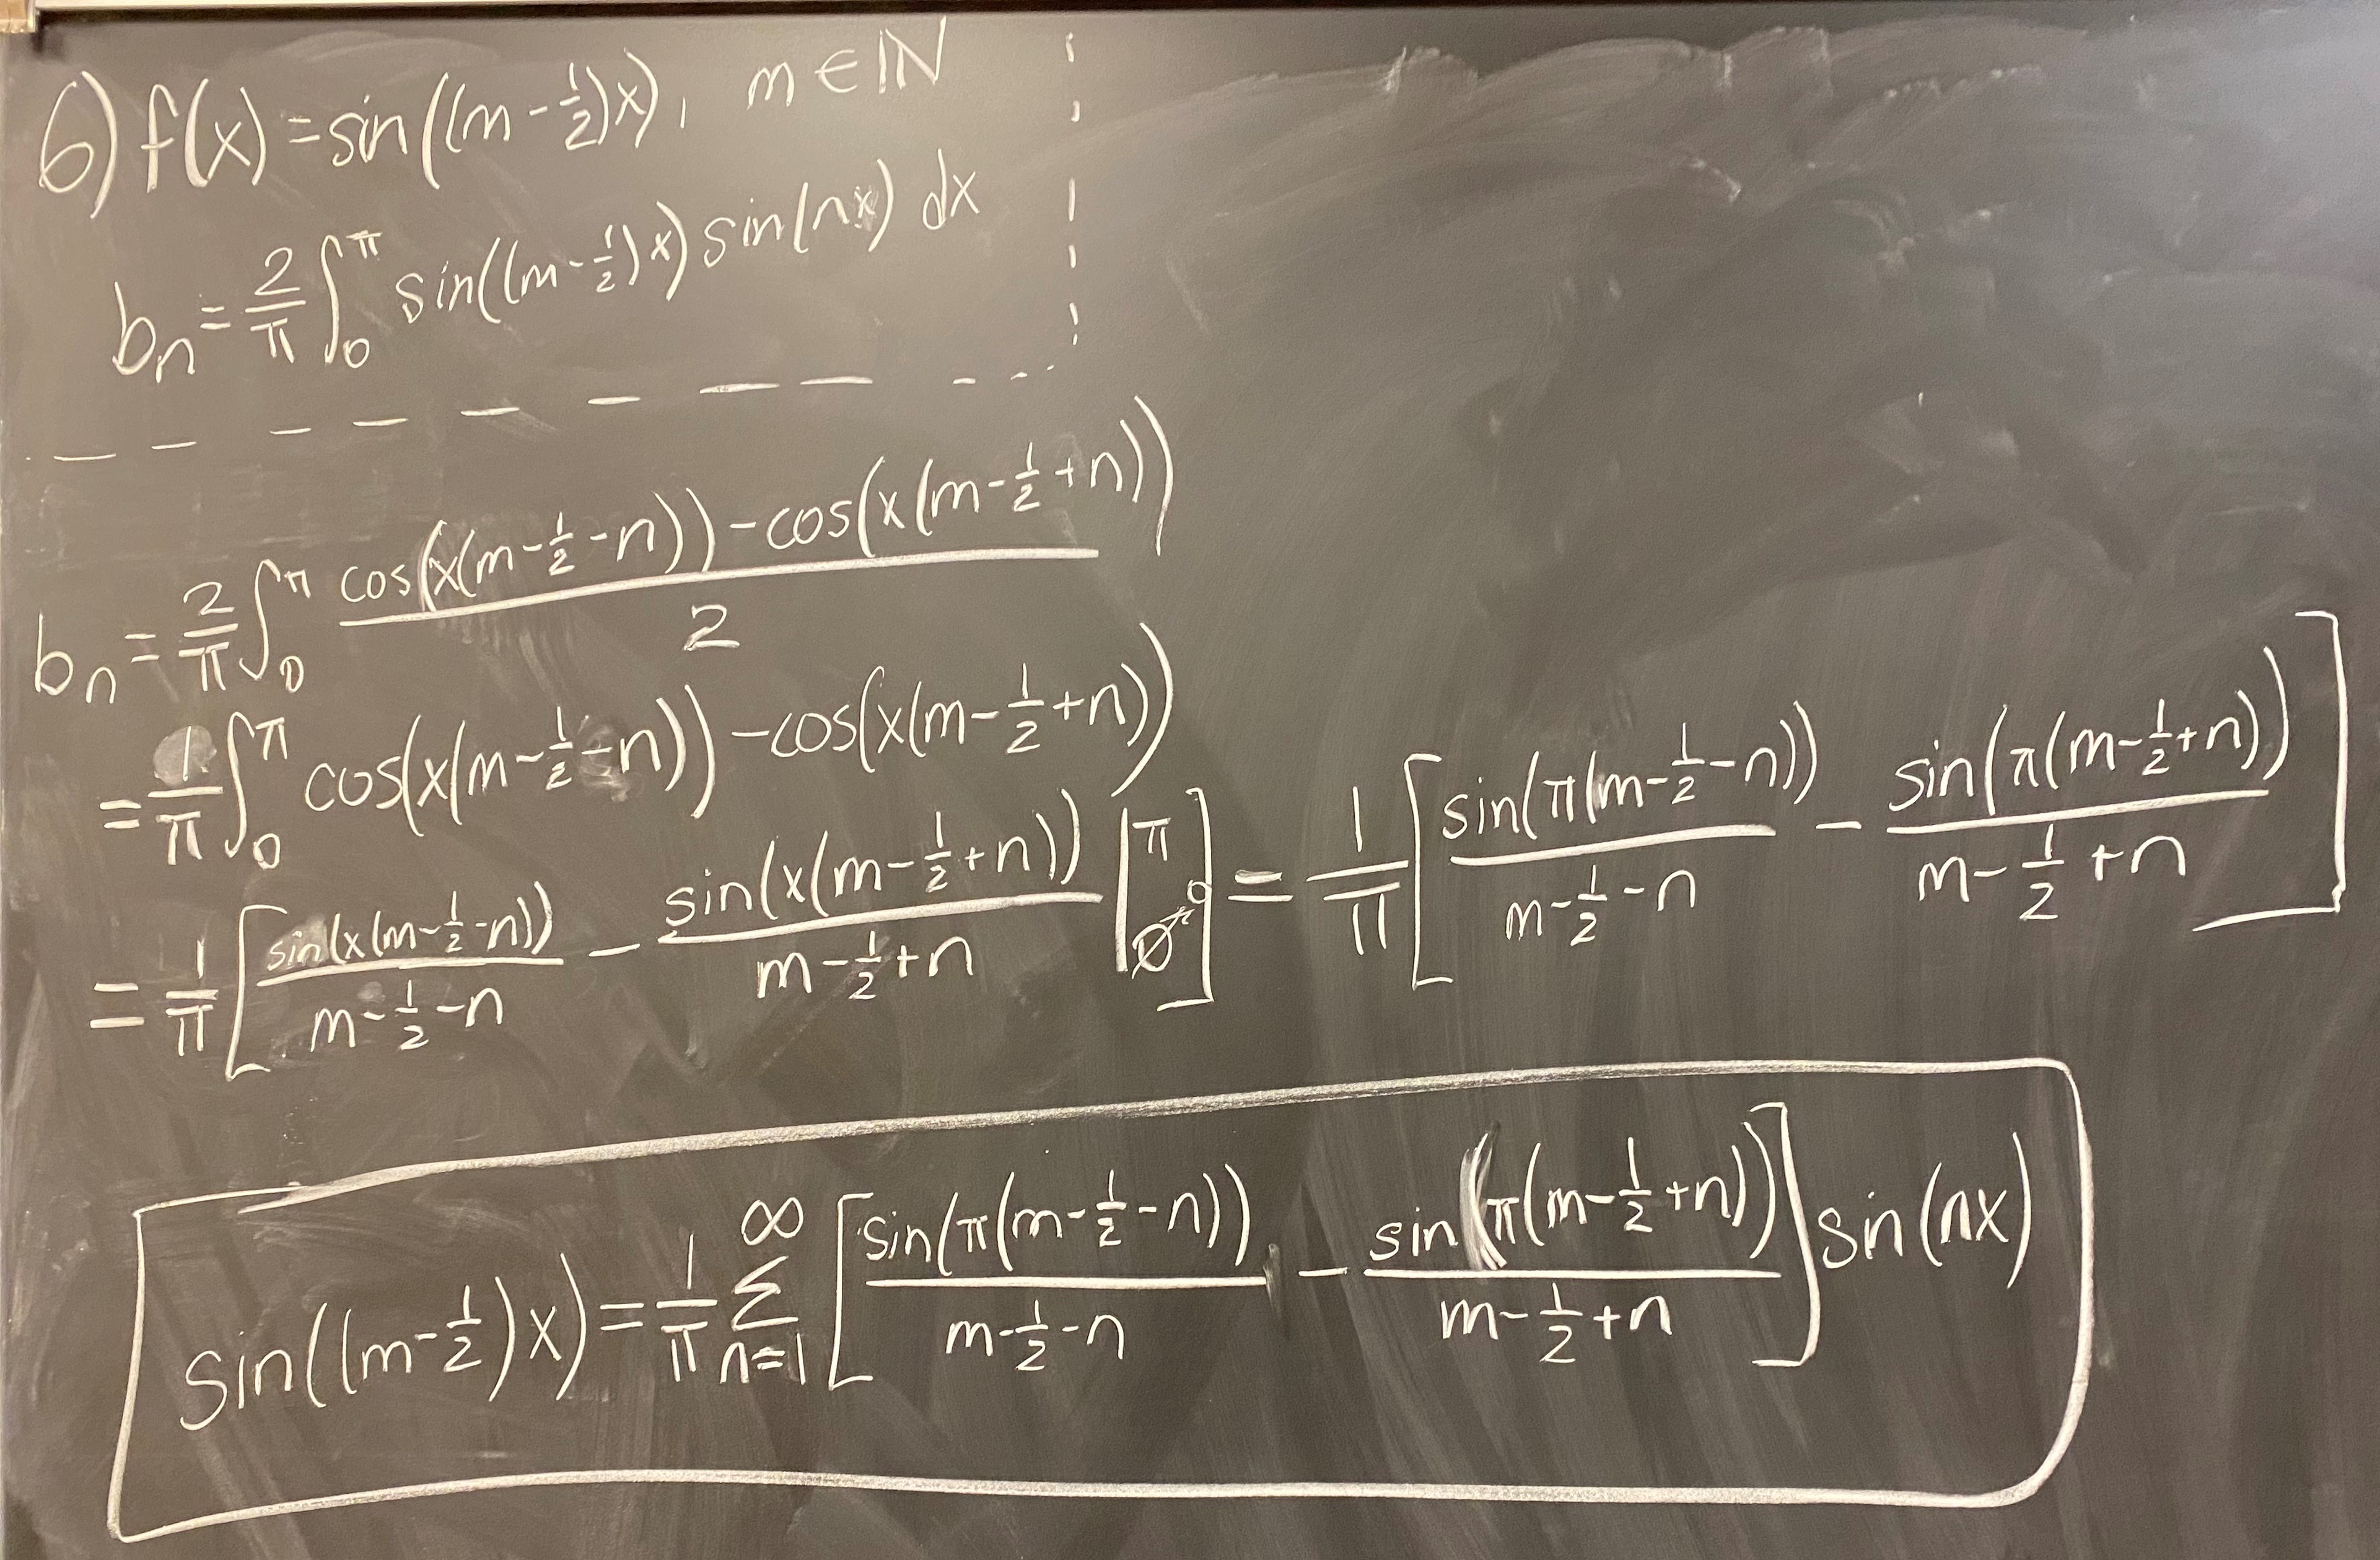 6) f(x) = sin((m - 1/2)x), m ∈ ℕ
b_n = 2/π ∫_0^π sin((m - 1/2)x) sin(nx) dx
b_n = 2/π ∫_0^π (cos(x(m - 1/2 - n)) - cos(x(m - 1/2 + n)))/2
= 1/π ∫_0^π cos(x(m - 1/2 - n)) - cos(x(m - 1/2 + n))
= 1/π [ sin(x(m - 1/2 - n))/(m - 1/2 - n) - sin(x(m - 1/2 + n))/(m - 1/2 + n) |_0^π ] = 1/π [ sin(π(m - 1/2 - n))/(m - 1/2 - n) - sin(π(m - 1/2 + n))/(m - 1/2 + n) ]
sin((m - 1/2)x) = 1/π Σ_{n=1}^∞ [ sin(π(m - 1/2 - n))/(m - 1/2 - n) - sin(π(m - 1/2 + n))/(m - 1/2 + n) ] sin(nx)